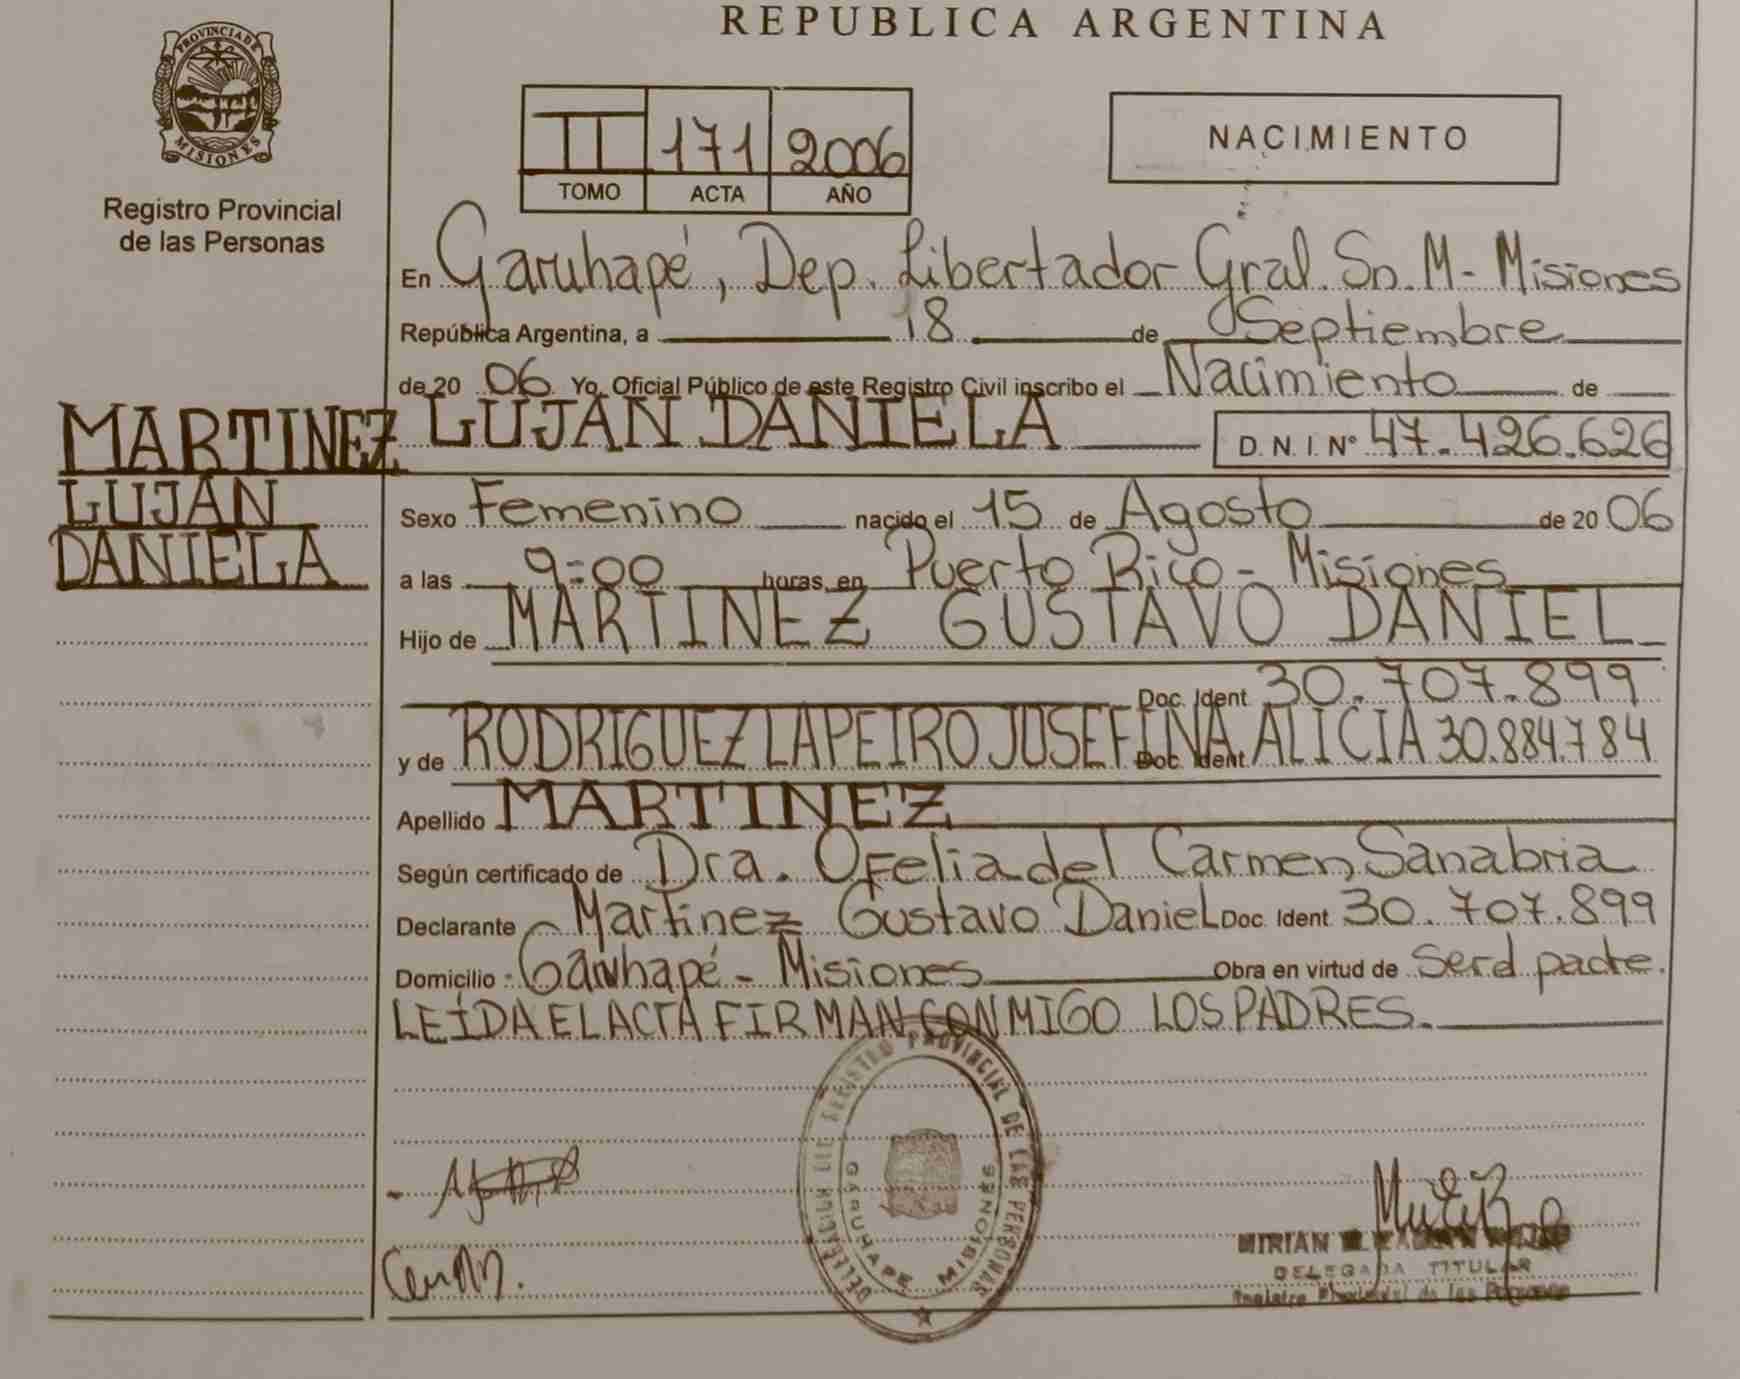 REPUBLICA ARGENTINA
PROVINCIA DE
MISIONES
Registro Provincial
de las Personas
II 171 2006
TOMO ACTA AÑO
NACIMIENTO
En Garuhapé, Dep. Libertador Gral. Sn. M - Misiones
República Argentina, a 18 de Septiembre
de 20 06 Yo, Oficial Público de este Registro Civil inscribo el Nacimiento de
MARTINEZ LUJAN DANIELA D. N. I. Nº 47.426.626
LUJAN
DANIELA
Sexo Femenino nacido el 15 de Agosto de 20 06
a las 9=00 horas, en Puerto Rico - Misiones
Hijo de MARTINEZ GUSTAVO DANIEL
Doc. Ident. 30.707.899
y de RODRIGUEZ LAPEIRO JOSEFINA ALICIA Doc. Ident. 30.884.784
Apellido MARTINEZ
Según certificado de Dra. Ofelia del Carmen Sanabria
Declarante Martinez Gustavo Daniel Doc. Ident. 30.707.899
Domicilio Garuhapé - Misiones Obra en virtud de
LEÍDA EL ACTA FIRMAN CONMIGO LOS PADRES.
REGISTRO PROVINCIAL DE LAS PERSONAS
GARUHAPE MISIONES
MIRIAN
DELEGADA TITULAR
Registro Provincial de las Personas